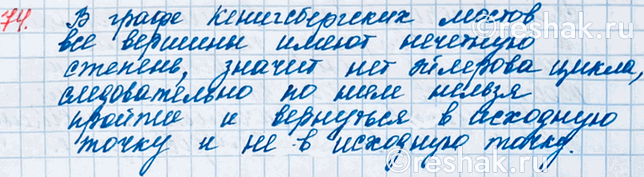 74. В графе Кенигсбергских мостов
все вершины имеют нечетную
степень, значит нет эйлерова цикла,
следовательно по ним нельзя
пройти и вернуться в исходную
точку и не в исходную точку.